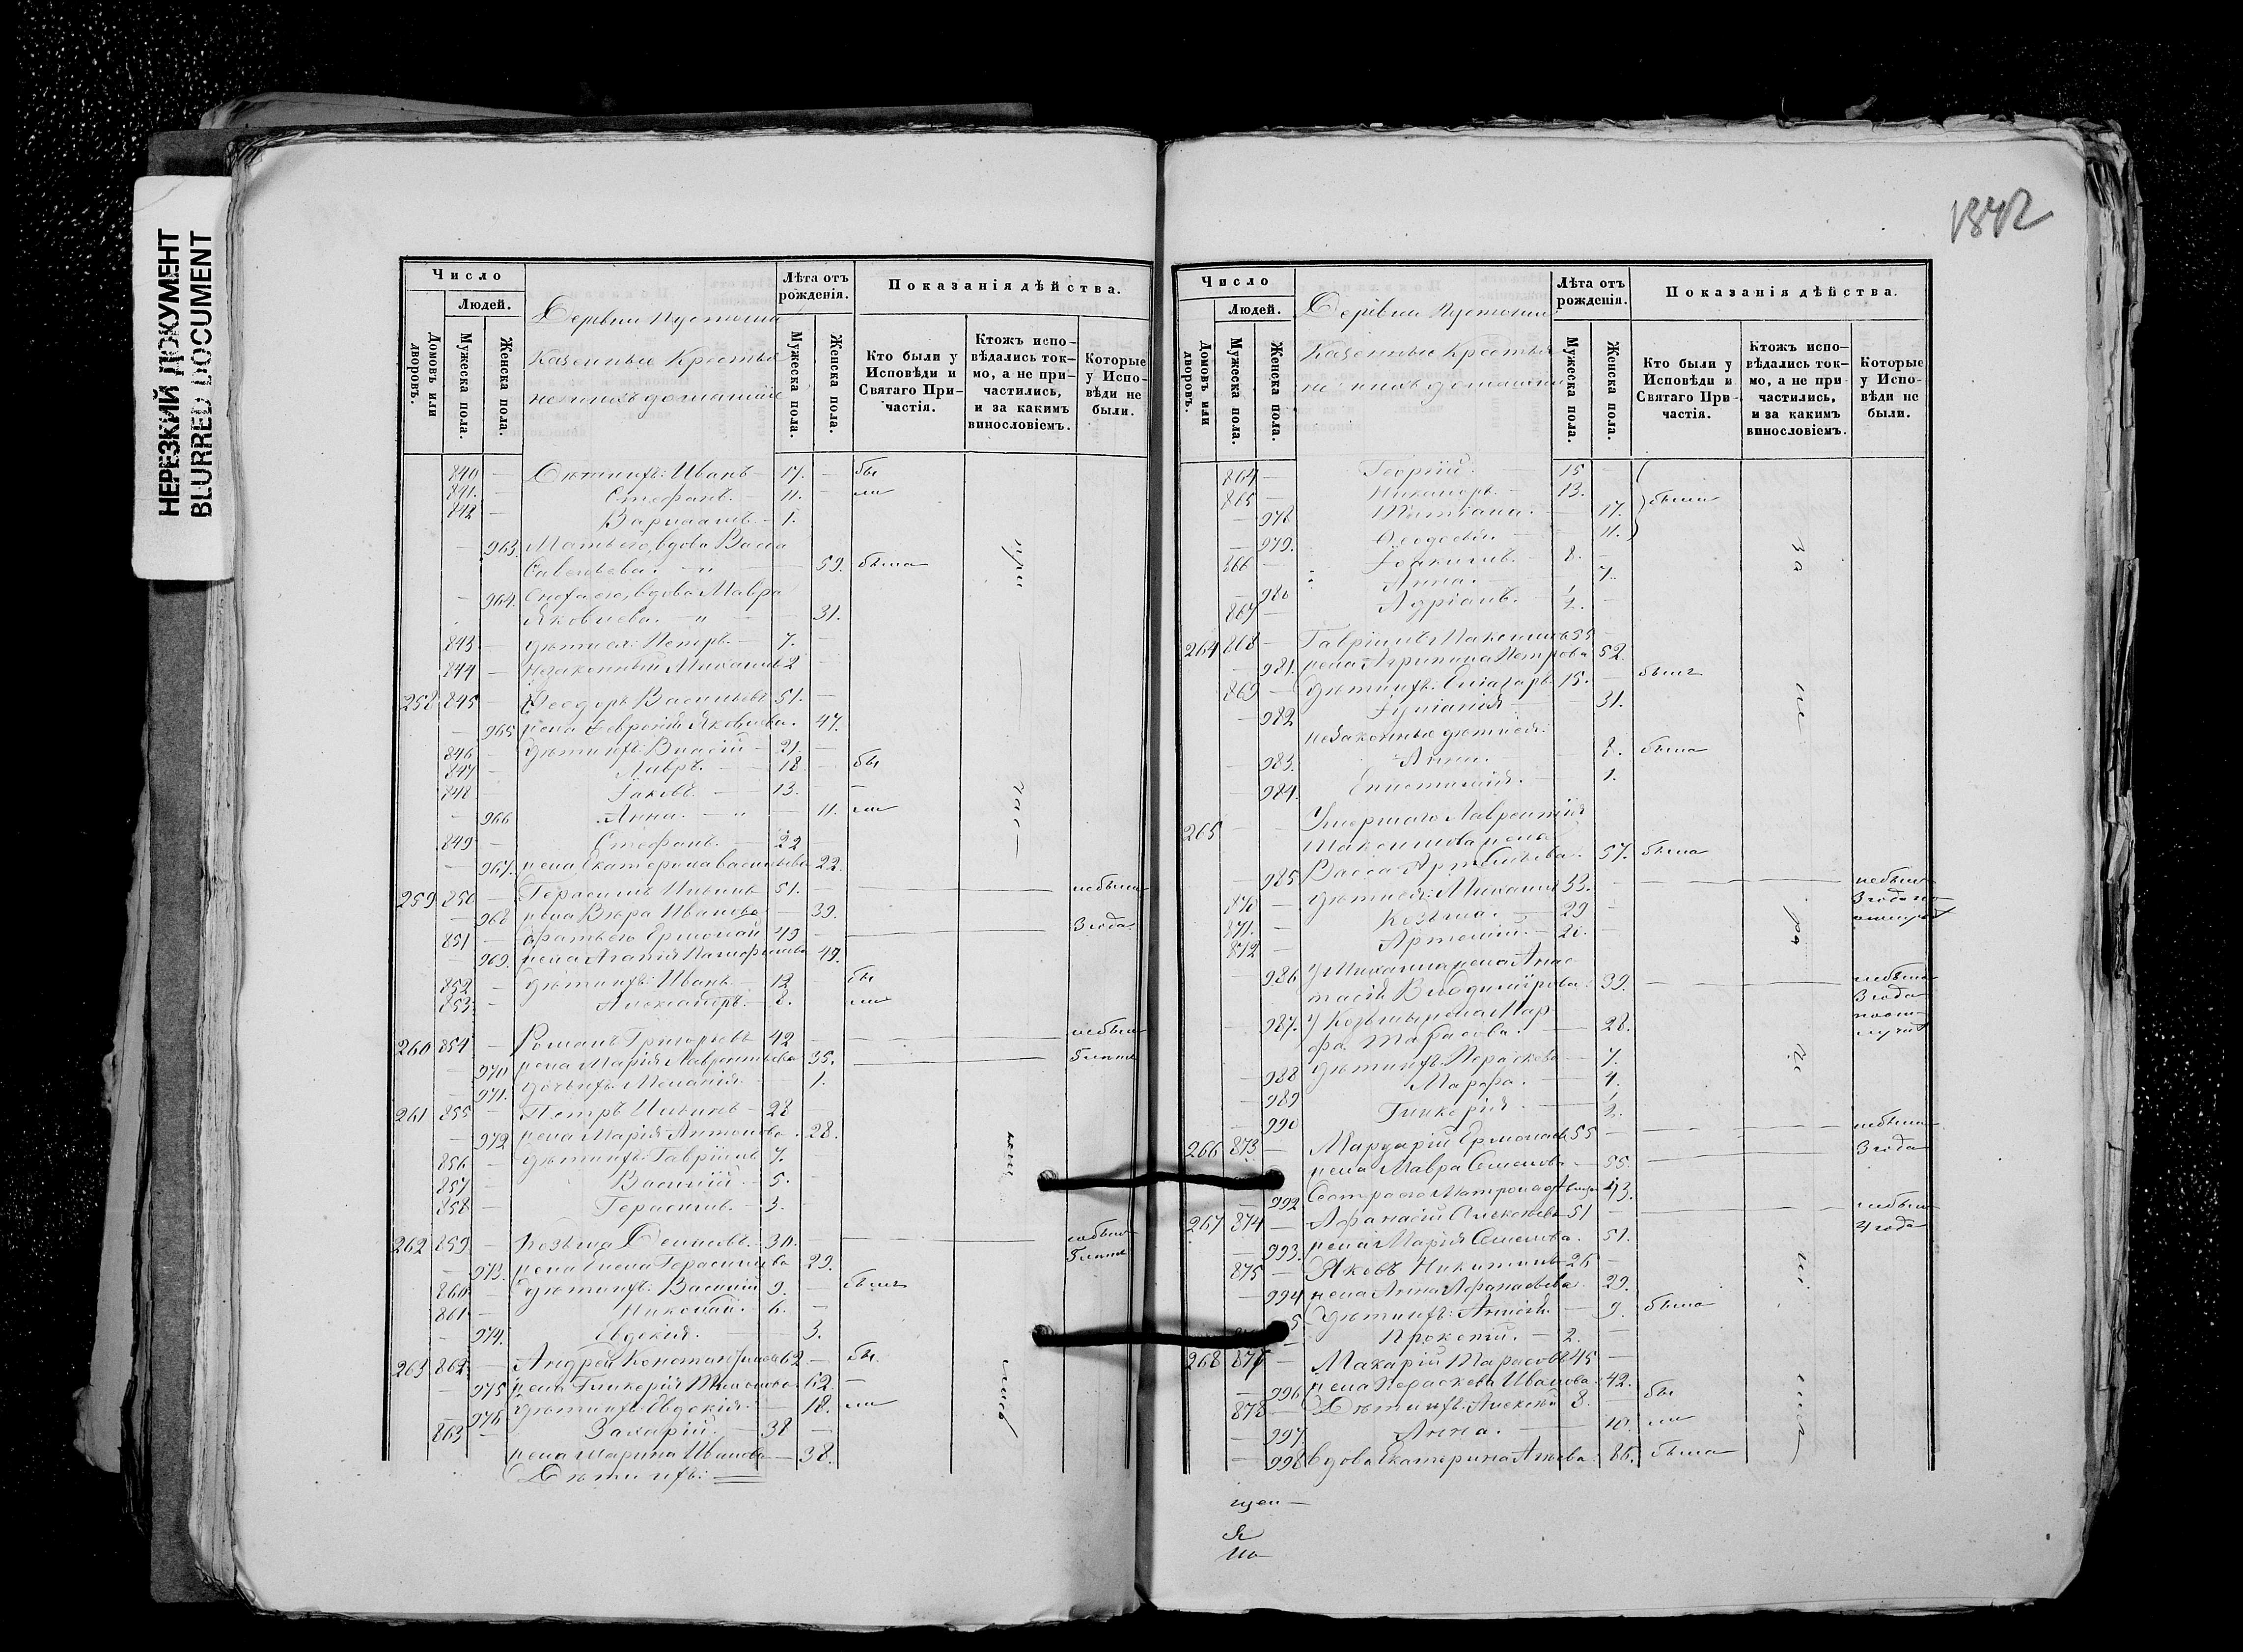 НЕРЕЗКИЙ ДОКУМЕНТ
BLURRED DOCUMENT
Число
Людей.
Домовъ или дворовъ.
Мужеска пола.
Женска пола.
Деревни
казенные Крестья
не и ихъ домашніе
Лѣта отъ рожденія.
Мужеска пола.
Женска пола.
Показанія дѣйства.
Кто были у Исповѣди и Святаго Причастія.
Ктожъ исповѣдались токмо, а не причастились, и за какимъ винословіемъ.
Которые у Исповѣди не были.
840 — Дѣти ихъ: Иванъ — 17. — бы
841. — Стефанъ. — 11. — ли
842 — Варлаамъ. — 1.
— 963. Мать его, вдова Васса
Савельева. — " — 59. была
— 964. Сноха его, вдова Мавра
Яковлева. — " — 31.
843 — дѣти ея: Петръ. — 7. —
844 — незаконный Михаилъ 2 —
258 845 — Ѳеодоръ Васильевъ 51. —
— 965 жена Февронія Яковлева. 47.
846 — дѣти ихъ: Власій — 21. —
847 — Лавръ. — 18 — бы
848 — Іаковъ. — 13. —
— 966 Анна. — " — 11. ли
849 — Стефанъ. — 22
— 967. жена Екатерина Васильева 22.
259 850 — Герасимъ Ильинъ 51. — небыли
— 968 жена Вѣра Иванова — 39.
851 — братъ его Ермолай 49 — 3 года
— 969. жена Агафія 49.
852 — дѣти ихъ: Иванъ. 12 — бы
853 — Александръ. — 8. — ли
260 854 — Романъ Григорьевъ 42 — небыли
— 970 жена Марія Лаврентьева 35. 5 лѣтъ
— 971. дочь ихъ Меланія. — 1.
261 855 — Петръ Ильинъ — 28 —
— 972 жена Марія Антонова. 28.
856 — дѣти ихъ: Гавріилъ 7. —
857 — Василій — 5. —
858 — Герасимъ. — 3. —
262 859 — Козьма 30. — небыли
— 973. жена Елена Герасимова 29. 5 лѣтъ
860 — дѣти ихъ: Василій 9. — были
861 — Николай. 6. —
— 974. 3.
263 862 — Андрей Константиновъ 62 — бы
— 975 жена Гликерія 62. —
— 976 дѣти ихъ: Евдокія — 18. ли
863 — Захарій. — 38 —
жена Марина Иванова — 38.
Дѣти ихъ: —
при
час
лись
1372
Число
Людей.
Домовъ или дворовъ.
Мужеска пола.
Женска пола.
Деревни
казенные Крестья
не и ихъ домашніе
Лѣта отъ рожденія.
Мужеска пола.
Женска пола.
Показанія дѣйства.
Кто были у Исповѣди и Святаго Причастія.
Ктожъ исповѣдались токмо, а не причастились, и за какимъ винословіемъ.
Которые у Исповѣди не были.
864 — Георгій. — 15 —
865 — Никаноръ. — 13. —
— 978 Татіана. — 17. были
— 979. Ѳеодосія. — 11.
866 — Іоакимъ. — 8. —
— 980 Анна. — 7.
867 — Адріанъ. — ½. —
264 868 — Гавріилъ Максимовъ 55 —
— 981. жена Агрипина Петрова 52.
869 — дѣти ихъ: Елеазаръ. 15. — были
— 982 Іуліанія — 31.
незаконные дѣти ея:
— 983. Анна. — 8. была
— 984. Епистимія. — 1.
265 — — Умершаго Лаврентія
Максимова жена
— 985 Васса 57. была
870 — дѣти ея: Михаилъ 33. — небыли
871. — Козьма. — 29 — 3 года
872 — Артемій. — 20. —
— 986 у Михаила жена Анас
тасія Владимірова. 39. — небыла
3 года
— 987. у Козьмы жена Мар
фа Тарасова. — 28.
— 988 дѣти ихъ: Параскева — 7.
— 989 Марфа. — 4.
— 990 Гликерія. — ½.
266 873 — Мардарій Ермолаевъ 55 — небыли
жена Мавра Семенова — 55. 3 года
— 992 Сестра его Матрона 43.
267 874 — Афанасій Алексѣевъ 51 — небыли
— 993. жена Марія Семенова. 51. 4 года
875 — Яковъ Никитинъ 26 —
— 994 жена Анна Афанасьева. 29.
5 дѣти ихъ: — 9. была
— Прокопій. — 2. —
268 877 — Макарій Тарасовъ 45 —
— 996 жена Параскева Иванова. 42.
878 — Дѣти ихъ: Алексѣй 8. — бы
— 997. Анна. — 10. ли
— 998 вдова Екатерина 86. была
за
не
ра